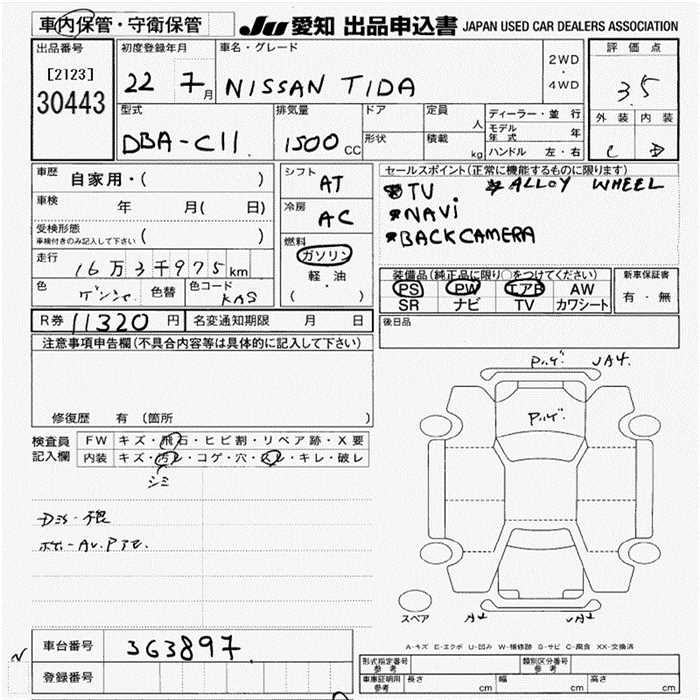 車内保管・守衛保管
JU 愛知 出品申込書 JAPAN USED CAR DEALERS ASSOCIATION
出品番号
[2123]
30443
初度登録年月
22 7月
車名・グレード
NISSAN TIDA
2WD
・
4WD
評価点
3.5
外装 内装
C D
型式
DBA-C11.
排気量
1500 CC
ドア
形状
定員
人
積載
kg
ディーラー・並行
モデル年式 年
ハンドル 左・右
車歴
自家用・( )
車検
年 月( 日)
受検形態
車検付きのみ記入して下さい ( )
走行
16万3千975km
色
色替
色コード
KAS
シフト
AT
冷房
AC
燃料
ガソリン
軽・油
( )
セールスポイント(正常に機能するものに限ります)
TV ALLOY WHEEL
NAVi
BACK CAMERA
装備品(純正品に限り○をつけてください)
PS PW エアB AW
SR ナビ TV カワシート
新車保証書
有・無
R券 11320 円
名変通知期限 月 日
後日品
注意事項申告欄(不具合内容等は具体的に記入して下さい)
修復歴 有 (箇所 )
検査員
記入欄
FW キズ・飛石・ヒビ割・リペア跡・X要
内装 キズ・汚レ・コゲ・穴・スレ・キレ・破レ
シミ
スペア
A-キズ E-エクボ U-凹み W-補修跡 S-サビ C-腐食 XX-交換済
車台番号
363897
登録番号
形式指定番号
参考
類別区分番号
参考
車庫証明用
参考
長さ cm
幅 cm
高さ cm